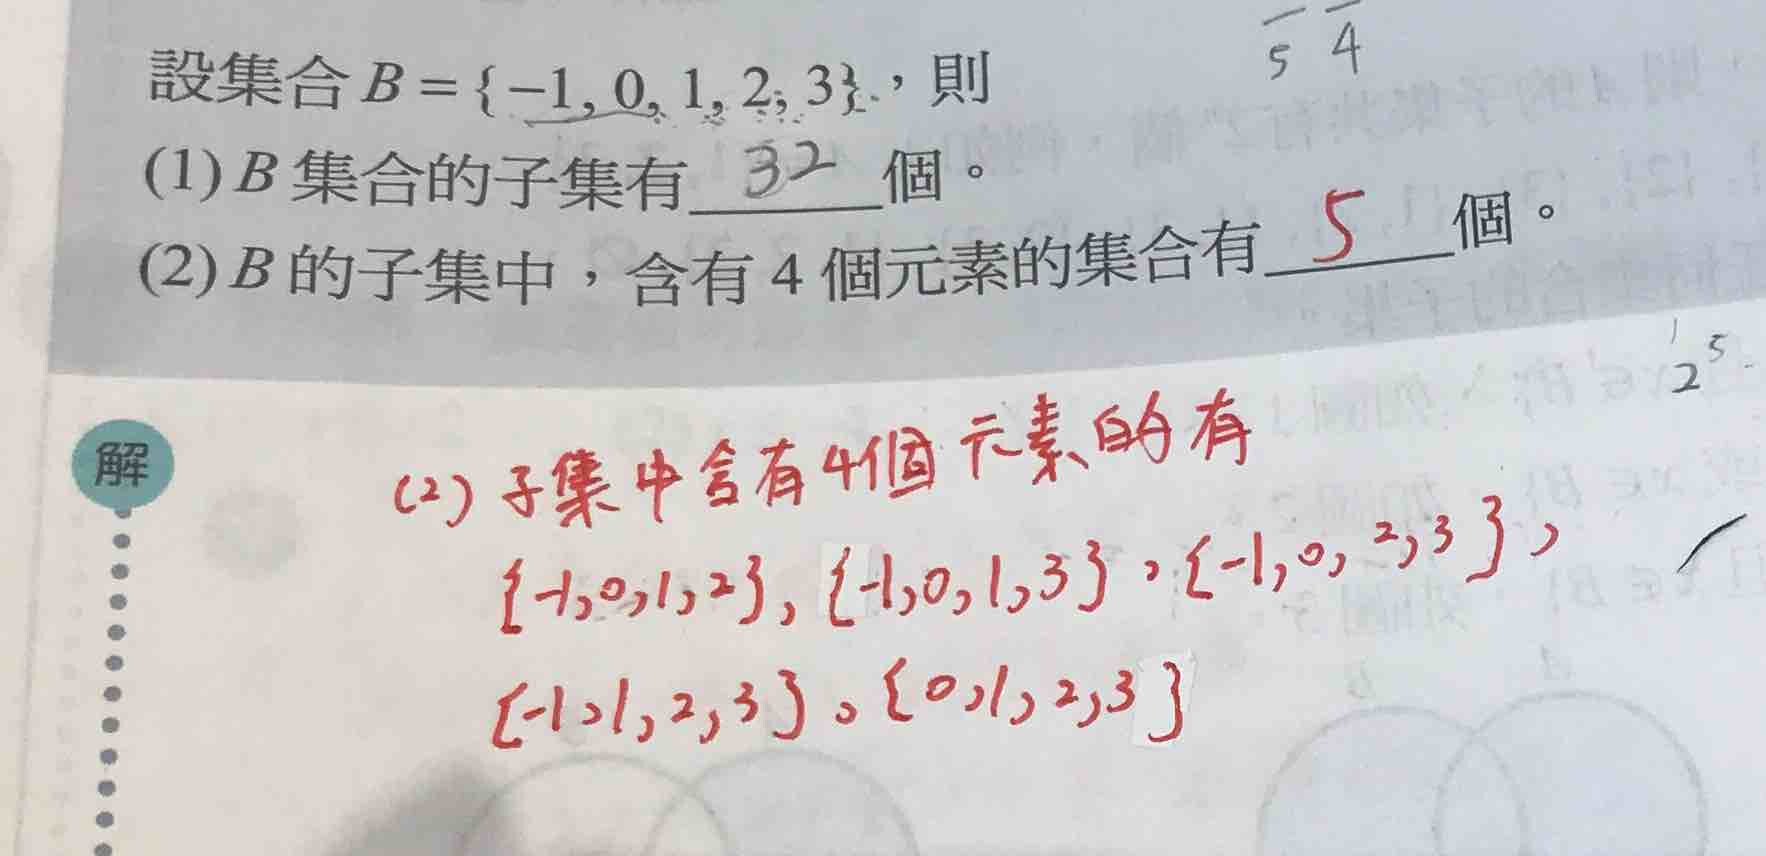 5 4
設集合 B = {−1, 0, 1, 2, 3}，則
(1) B 集合的子集有 32 個。
(2) B 的子集中，含有 4 個元素的集合有 5 個。
2⁵
解
(2) 子集中含有4個元素的有
{-1,0,1,2}, {-1,0,1,3}, {-1,0,2,3},
{-1,1,2,3}, {0,1,2,3}